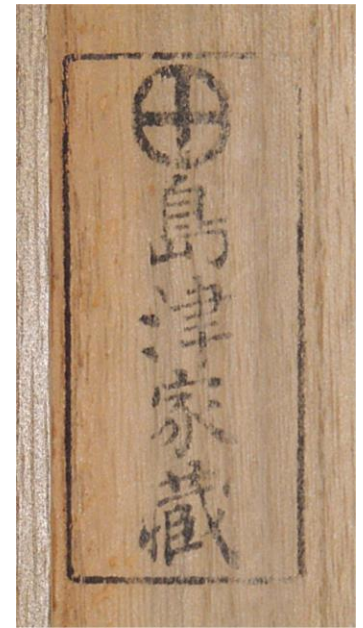 島津家蔵